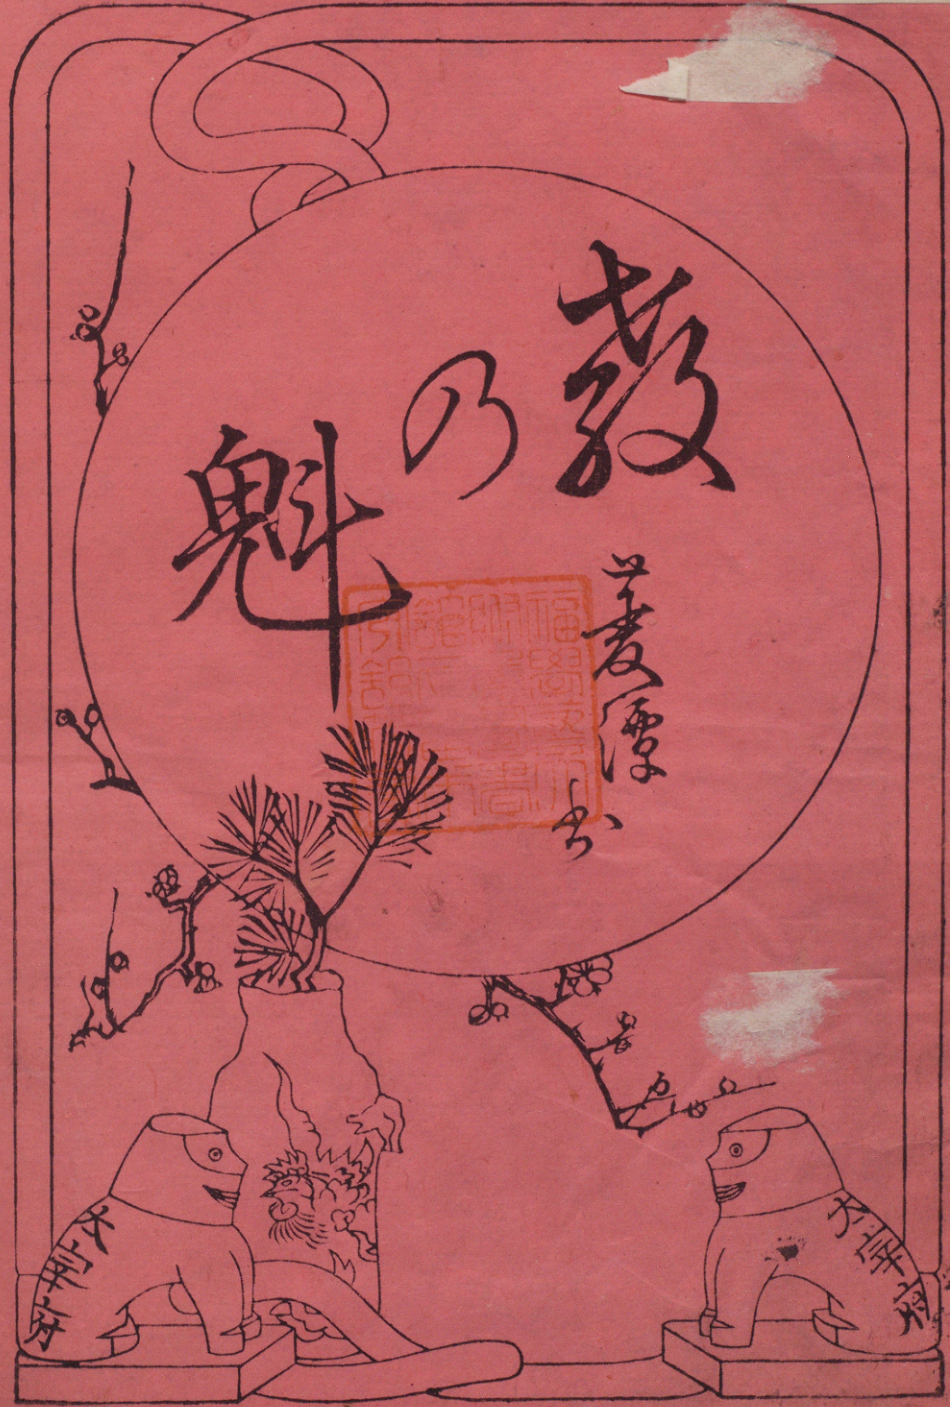 教
乃
魁
菱潭書
太宰府
太宰府